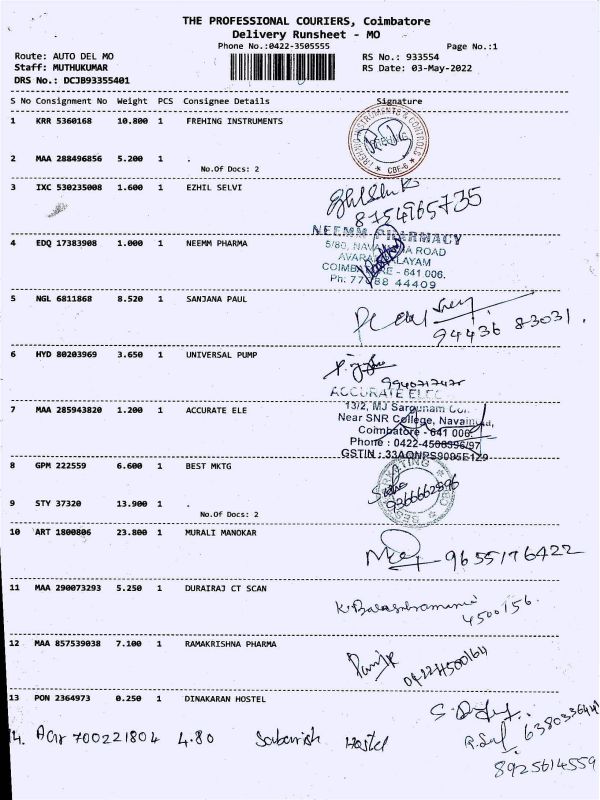 THE PROFESSIONAL COURIERS, Coimbatore
Delivery Runsheet - MO
Phone No.:0422-3505555
Page No.:1
Route: AUTO DEL MO
RS No.: 933554
Staff: MUTHUKUMAR
RS Date: 03-May-2022
DRS No.: DCJB93355401
S No Consignment No Weight PCS Consignee Details Signature
1 KRR 5360168 10.800 1 FREHING INSTRUMENTS
CBE-6
2 MAA 288496856 5.200 1 .
No.Of Docs: 2
3 IXC 530235008 1.600 1 EZHIL SELVI
8754965735
NEEMM PHARMACY
4 EDQ 17383908 1.000 1 NEEMM PHARMA
5/80, ROAD
COIMBATORE - 641 006.
44409
5 NGL 6811868 8.520 1 SANJANA PAUL
94436 83031.
6 HYD 80203969 3.650 1 UNIVERSAL PUMP
ACCURATE ELEC
7 MAA 285943820 1.200 1 ACCURATE ELE
13/2, MJ Sargunam
Near SNR College,
Coimbatore - 641 006.
Phone : 0422-4500396/97
GSTIN : 33AQNPS9095E1Z9
8 GPM 222559 6.600 1 BEST MKTG
9 STY 37320 13.900 1 .
No.Of Docs: 2
10 ART 1800806 23.800 1 MURALI MANOKAR
9655176422
11 MAA 290073293 5.250 1 DURAIRAJ CT SCAN
K. Balasubramani
4500156.
12 MAA 857539038 7.100 1 RAMAKRISHNA PHARMA
04224500164
13 PON 2364973 0.250 1 DINAKARAN HOSTEL
14. 700221804 4.80 Sabarish Hostel
8925614559